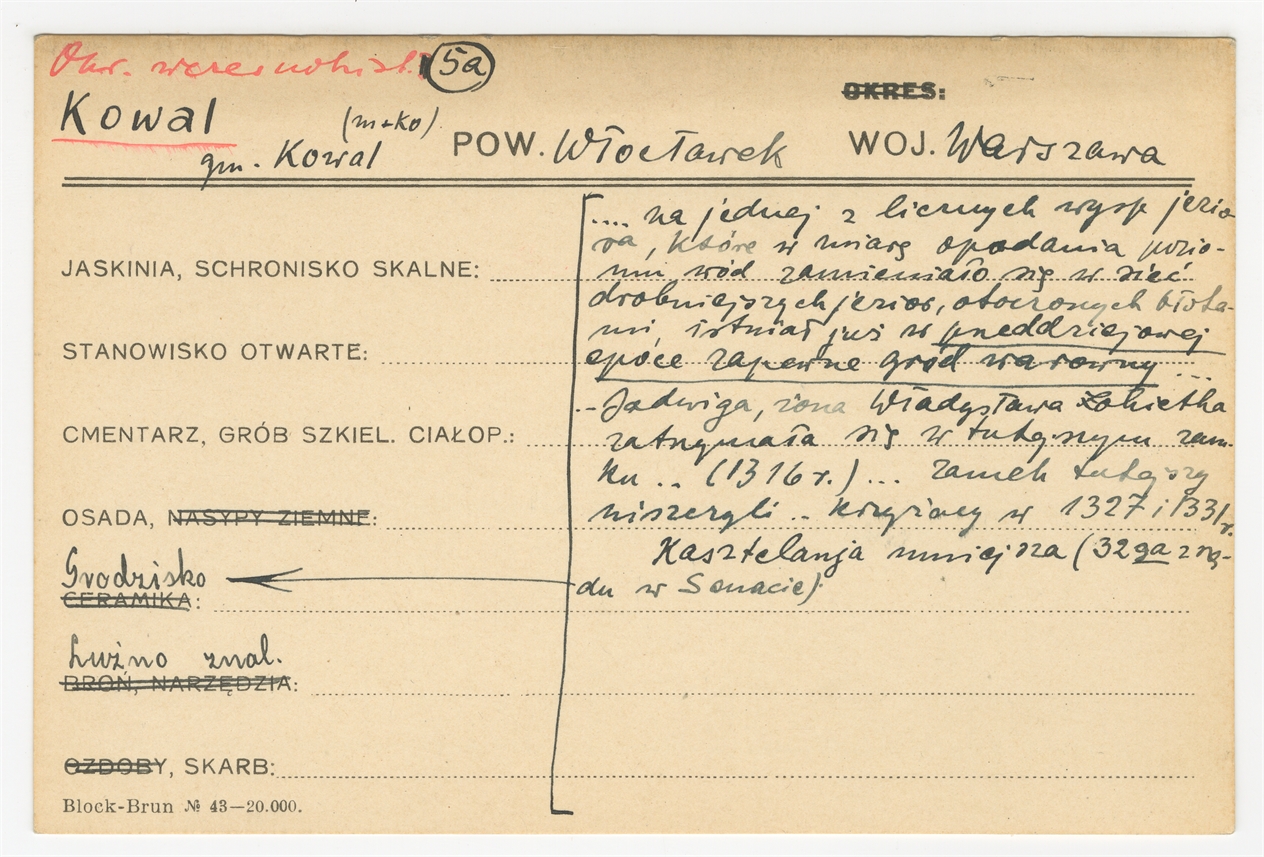 Okr. wczesnohist. 5a
OKRES:
Kowal (m-ko)
gm. Kowal POW. Włocławek WOJ. Warszawa
.... na jednej z licznych wysp jezio-
ra, które w miarę opadania pozio-
JASKINIA, SCHRONISKO SKALNE: mu wód zamieniało się w sieć
drobniejszych jezior, otoczonych błota-
mi, istniał już w przeddziejowej
STANOWISKO OTWARTE: epoce zapewne gród warowny ...
.. Jadwiga, żona Władysława Łokietka
CMENTARZ, GRÓB SZKIEL. CIAŁOP.: zatrzymała się w tutejszym zam-
ku .. (1316 r.) ... zamek tutejszy
OSADA, NASYPY ZIEMNE: niszczyli .. Krzyżacy w 1327 i 1331 r.
Kasztelanja mniejsza (32ga z rzę-
Grodzisko du w Senacie)
CERAMIKA:
Luźno znal.
BROŃ, NARZĘDZIA:
OZDOBY, SKARB:
Block-Brun № 43—20.000.